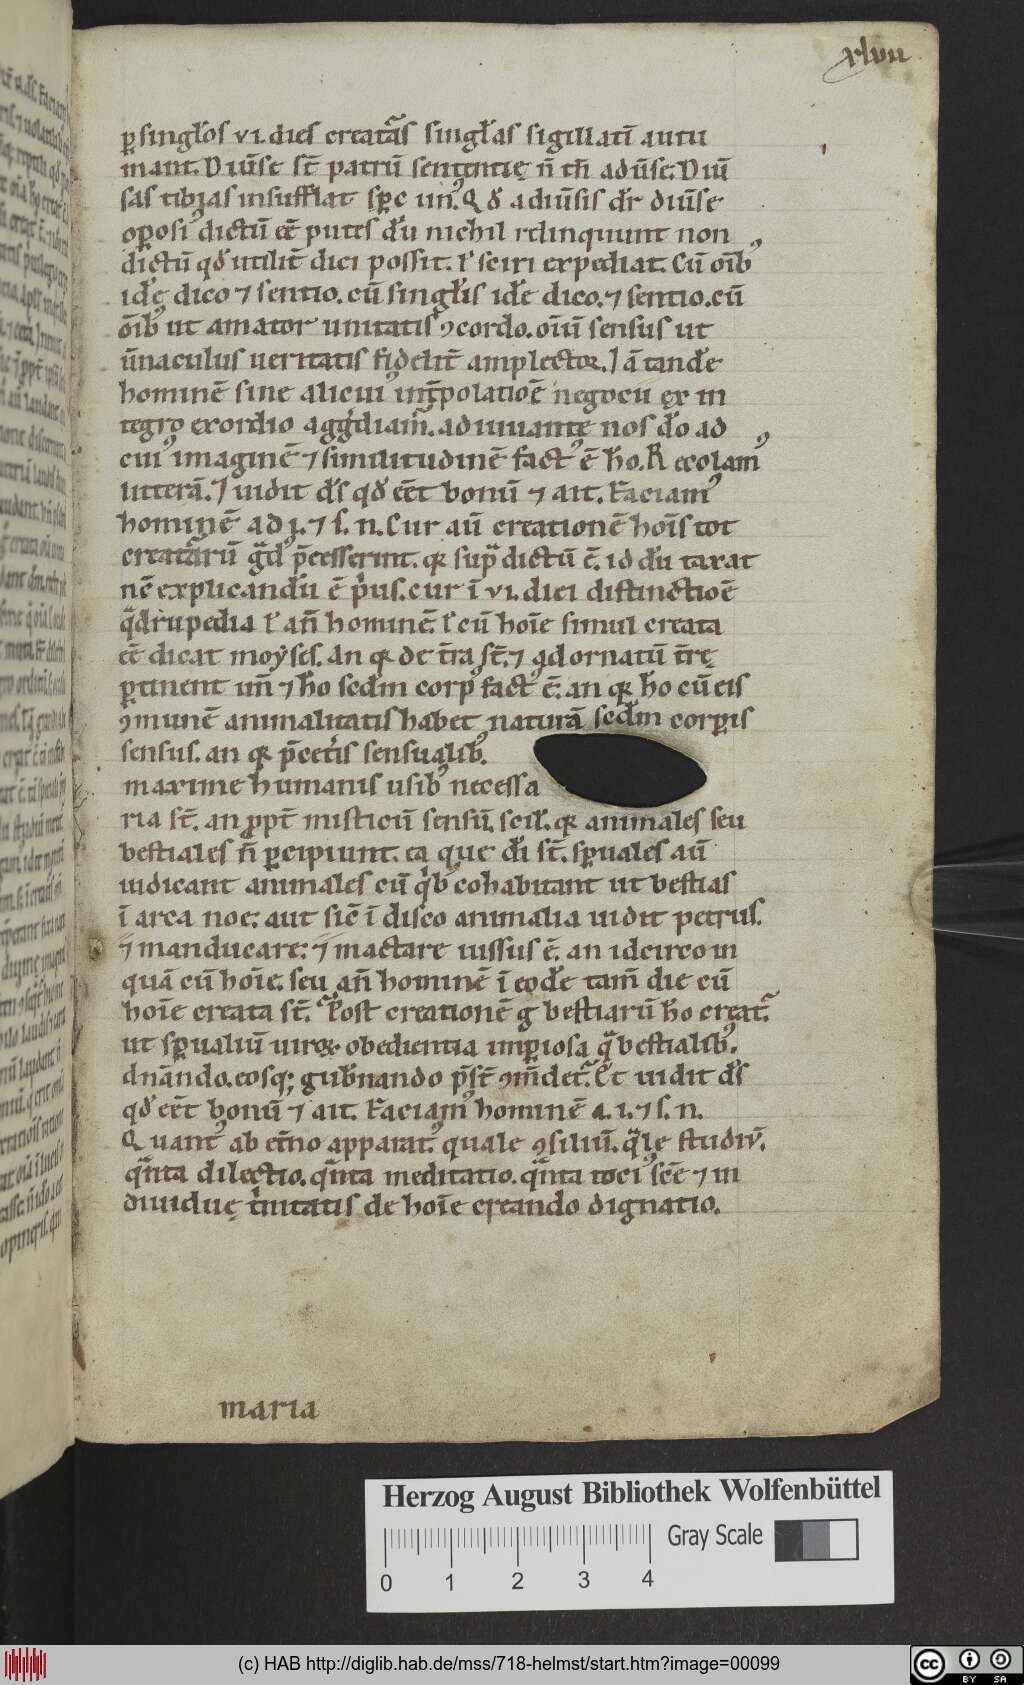 xlvii
ꝑ singlos vi. dies creatas singlas sigillatī autu
mant. Diūse st̄ patrū sententię n̄ tn̄ adūse. Diū
sas tibias insufflat spc un᷒. Qd̄ a diūsis dr̄ diūse
oꝑosi dictū ēē putes dū nichil relinquunt non
dictū qd̄ utilit̄ dici possit. ł sciri expediat. Cū oīb᷒
idē dico ⁊ sentio. cū singlis idē dico. ⁊ sentio. cū
oīb᷒ ut amator unitatis ꝯcordo. oīū sensus ut
ūnaculus ueritatis fidelit̄ amplector. Iā tandē
hominē sine alicui᷒ int̄polatiōe negocii ex in
tegro exordio aggdiam᷒. adiuuante nos dō ad
cui᷒ imaginē ⁊ similitudinē fact᷒ ē hō. Recolam᷒
litterā. ⁊ uidit ds̄ qd̄ eēt bonū ⁊ ait. Faciam᷒
hominē ad .i. ⁊ s. n. Cur aū creationē hoīs tot
creatarū gd᷒ p̄cesserint. qꝛ supͣ dictū ē. id dū taxat
nē explicandū ē pⁱus. cur ī vi. diei distinctiōe
qͣdrupedia ł an̄ hominē. ł cū hoīe simul creata
eē dicat moẏses. An qꝛ de t̄ra st̄. ⁊ ad ornatū t̄rę
ꝑtinent im̄ ⁊ hō scdm corp᷒ fact᷒ ē. an qꝛ hō cū eis
ꝯmunē animalitatis habet naturā scdm corꝑis
sensus. an qꝛ p̄cet̄is sensualib᷒.
maxime humanis usib᷒ necessa
ria st̄. an ꝓpt̄ misticū sensū. scil. qꝛ animales seu
bestiales n̄ ꝑcipiunt. ea que dī st̄. spūales aū
iudicant animales cū qⁱb᷒ cohabitant ut bestias
ī arca noe: aut sic ī disco animalia uidit petrus.
⁊ manducare: ⁊ mactare iussus ē. an idcirco in
quā cū hoīe. seu an̄ hominē ī eodē tam̄ die cū
hoīe creata st̄. Post creationē g̊ bestiarū hō creat᷑.
ut spūaliū uiroꝝ obedientia imꝑiosa qͣ bestialib᷒.
dnāndo. eosq; gub̄nando p̄st̄ ꝯm̄det᷑. Et uidit ds̄
qd̄ eēt bonū ⁊ ait. Faciam᷒ hominē a. i. ⁊ s. n.
Quant᷒ ab et̄no apparat᷒. quale ꝯsiliū. qͣle studiū.
qͣnta dilectio. qͣnta meditatio. qͣnta toci᷒ scē ⁊ in
diuiduę tⁱnitatis de hoīe creando dignatio.
maria
Herzog August Bibliothek Wolfenbüttel
Gray Scale
0 1 2 3 4
(c) HAB http://diglib.hab.de/mss/718-helmst/start.htm?image=00099
cc BY SA